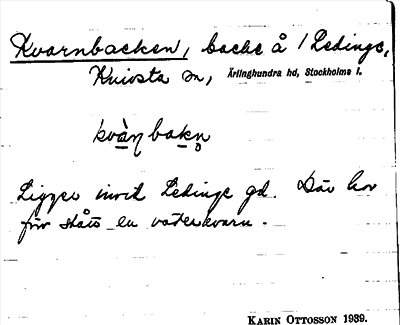 Kvarnbacken, backe å / Ledinge,
Knivsta sn, Ärlinghundra hd, Stockholms l.
kvàn bakn
Ligger invid Ledinge gd. Där har
förr stått en väderkvarn.
KARIN OTTOSSON 1939.